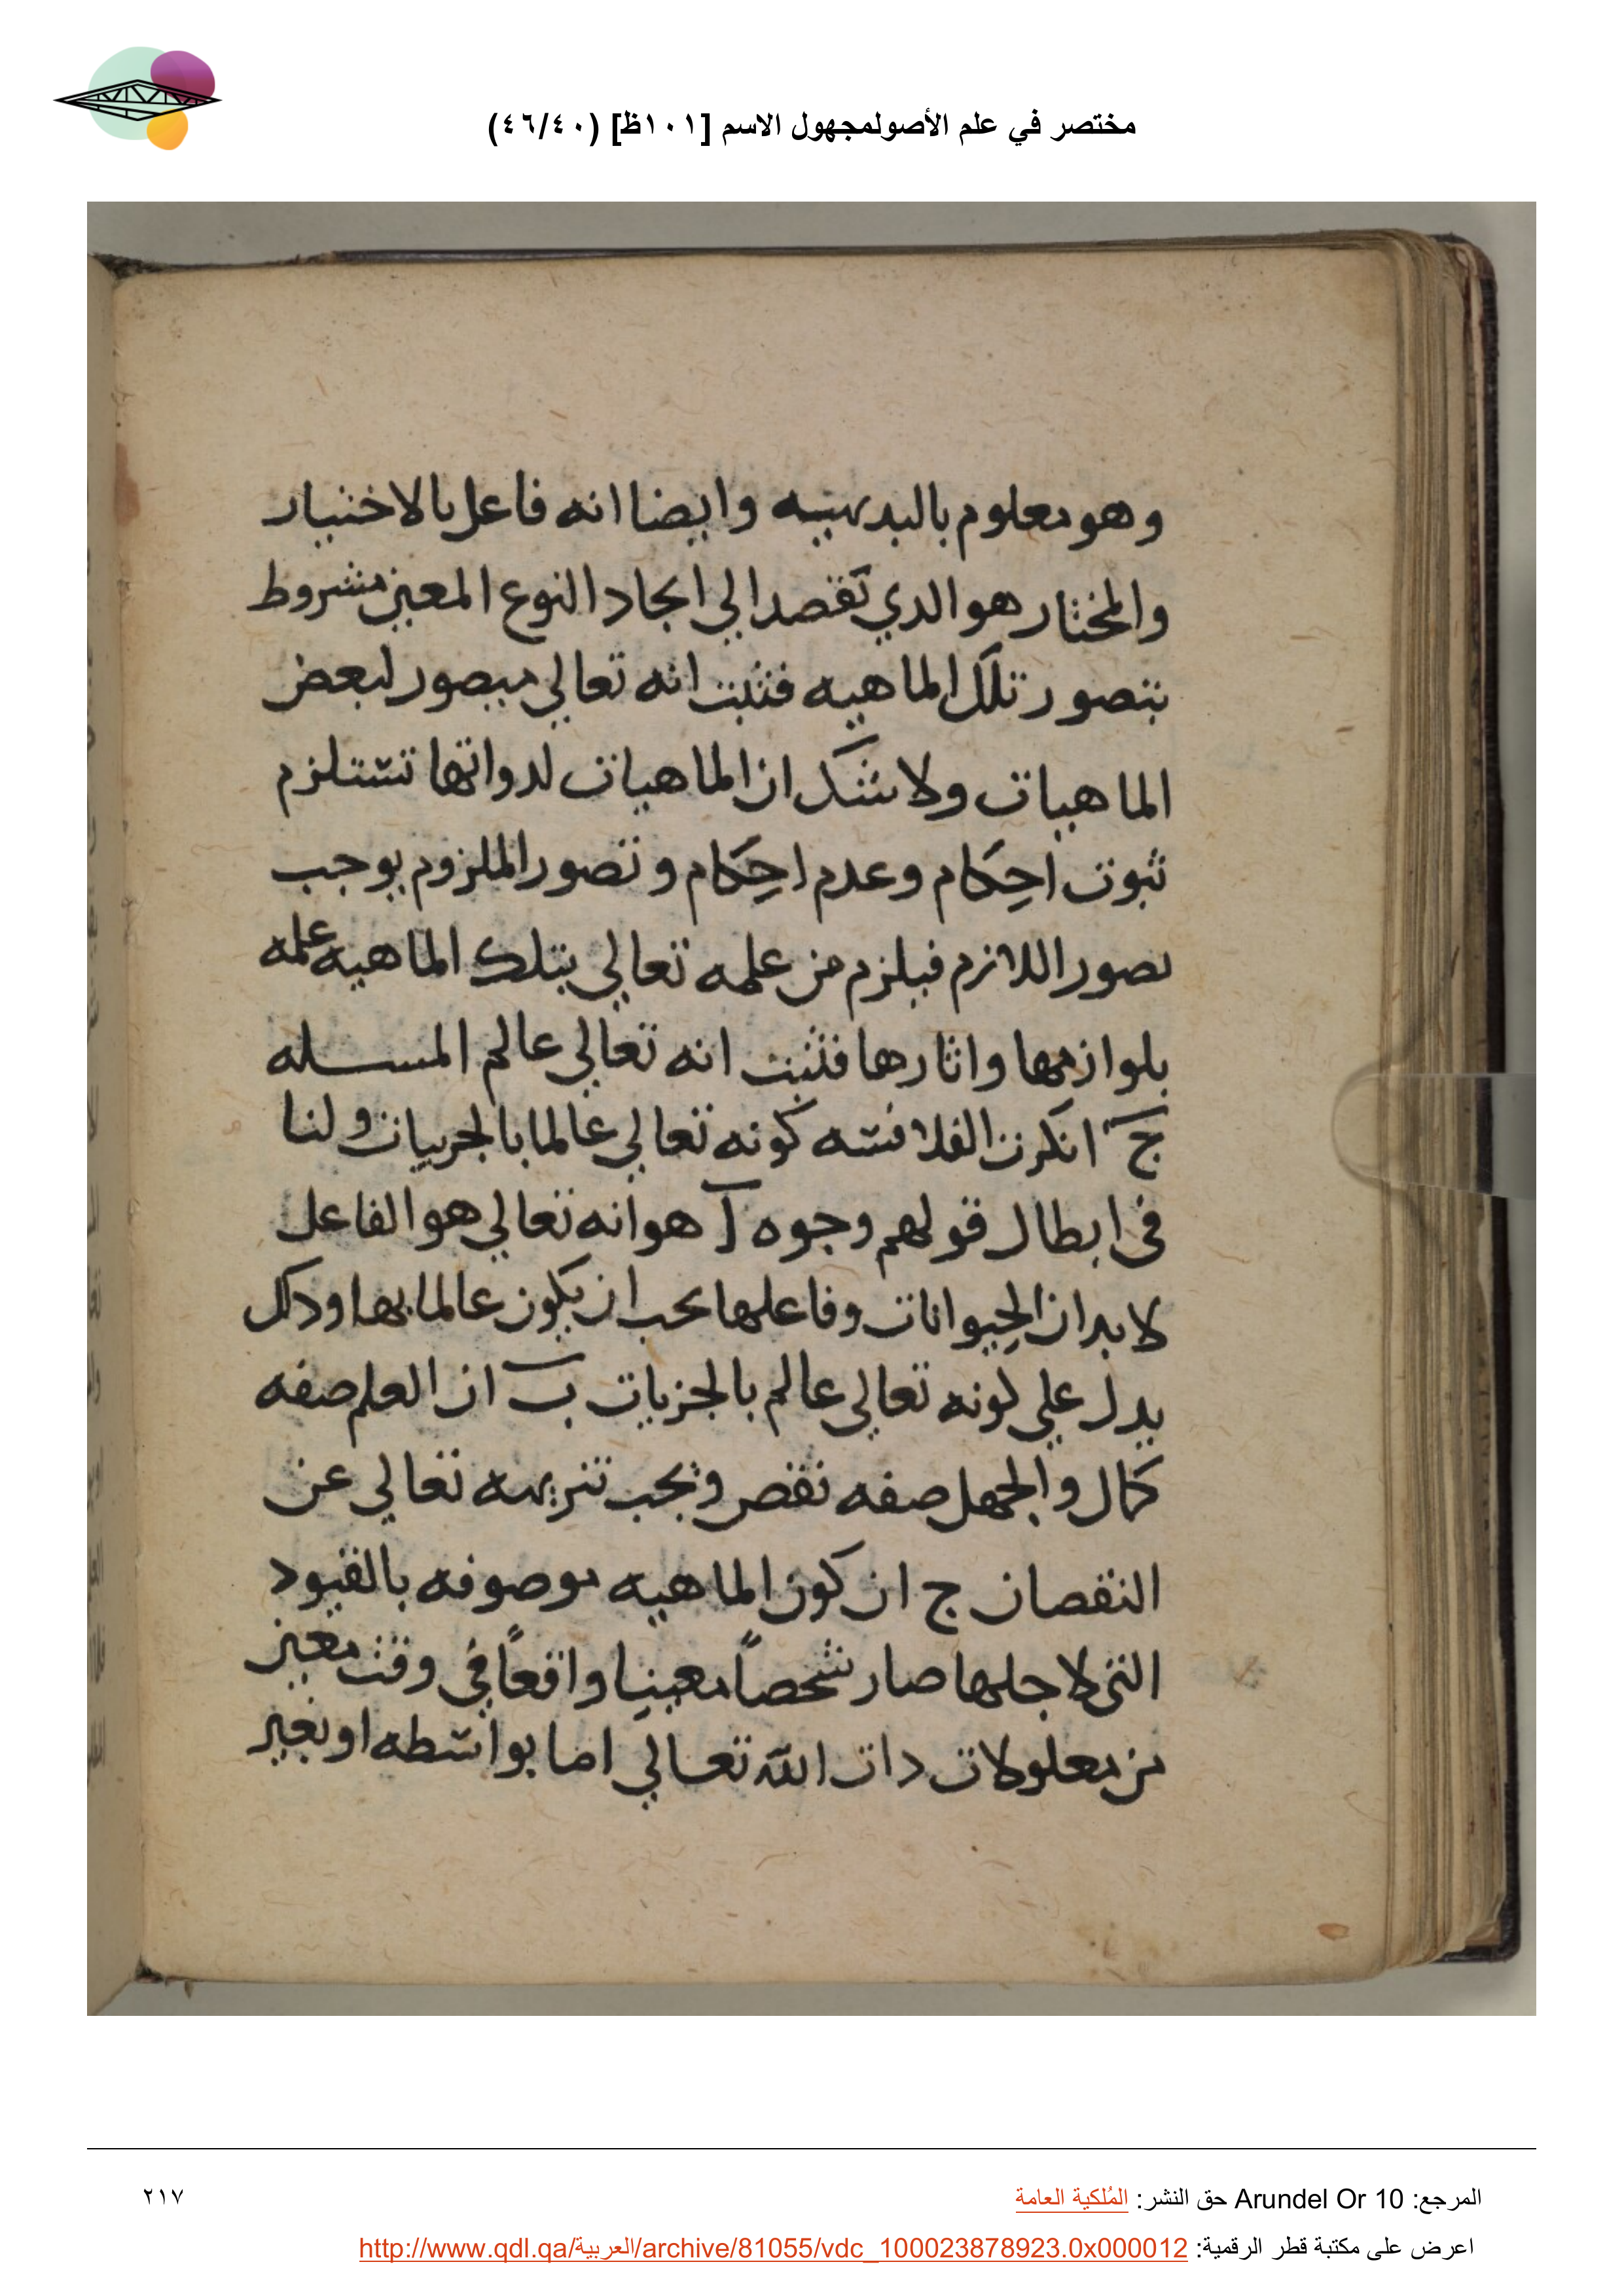 مختصر في علم الأصولمجهول الاسم [١٠١ظ] (٤٦/٤٠)
وهو معلوم بالبديهيه وايضا انه فاعل بالاختيار
والمختار هو الدي تقصد الي ايجاد النوع المعين مشروط
بتصور تلك الماهيه فثبت انه تعالي متصور لبعض
الماهيات ولا شك ان الماهيات لدواتها تستلزم
ثبوت احكام وعدم احكام وتصور الملزوم يوجب
تصور اللازم فيلزم من علمه تعالي بتلك الماهيه علمه
بلوازمها واثارها فثبت انه تعالي عالم المسله
ج انكرت الفلاسفه كونه تعالي عالما بالجزييات ولنا
في ابطال قولهم وجوه آ هو انه تعالي هو الفاعل
لابدان الحيوانات وفاعلها يجب ان يكون عالما بها ودلك
يدل علي كونه تعالي عالم بالجزيات ب ان العلم صفه
كمال والجهل صفه نقص ويجب تنزيهه تعالي عن
النقصان ج ان كون الماهيه موصوفه بالقيود
التي لاجلها صار شخصاً معينا واقعاً في وقت معين
من معلولات دات الله تعالي اما بواسطه او بغير
المرجع: Arundel Or 10 حق النشر: المُلكية العامة
٢١٧
اعرض على مكتبة قطر الرقمية: http://www.qdl.qa/العربية/archive/81055/vdc_100023878923.0x000012